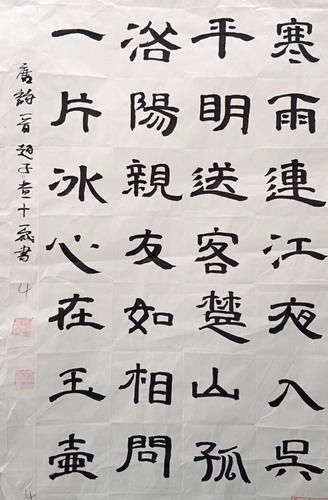 寒雨連江夜入吳
平明送客楚山孤
洛陽親友如相問
一片冰心在玉壷
唐詩一首 趙子壹十歲書